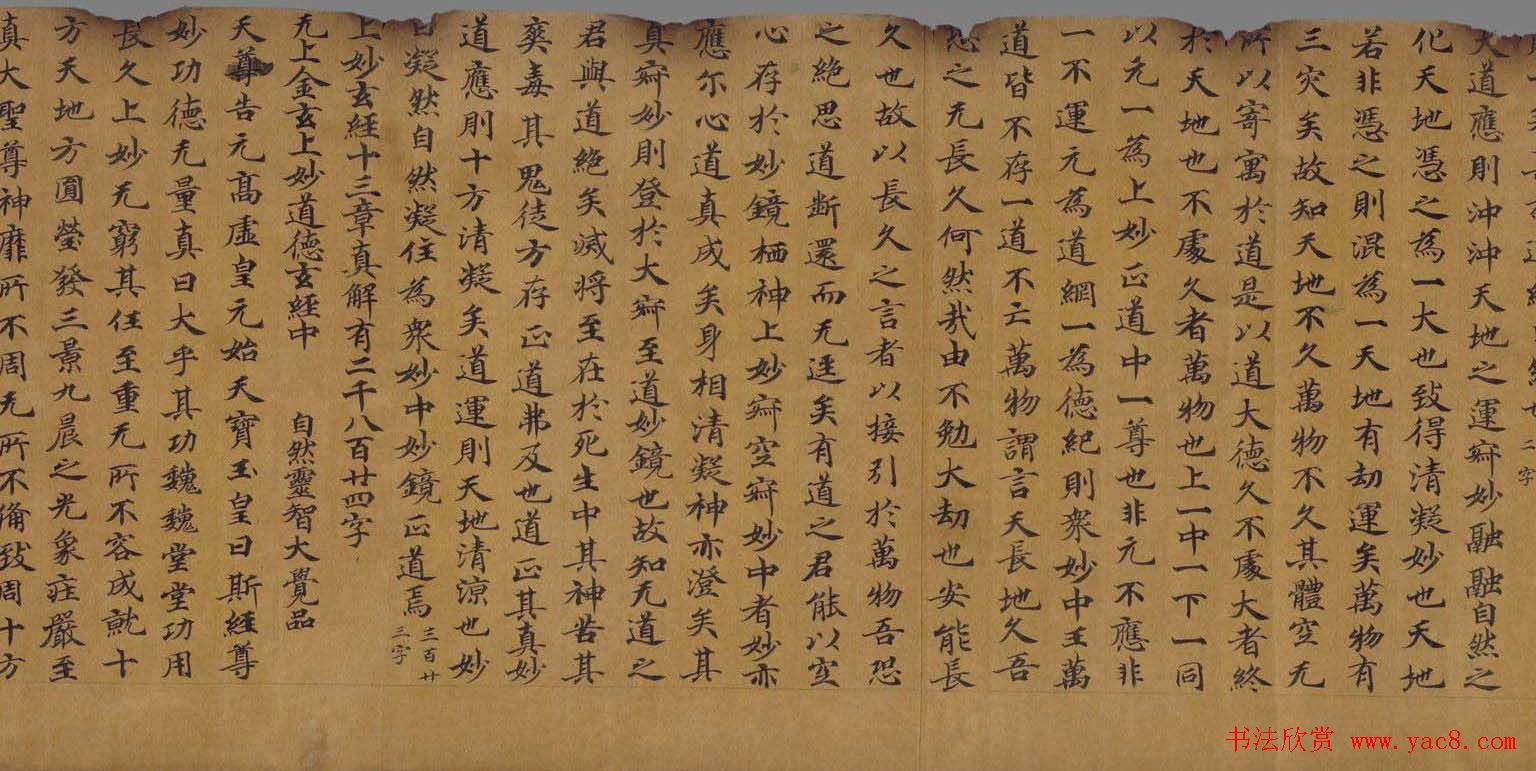 二字
大道應則沖沖天地之運㝛妙融融自然之
化天地憑之為一大也致得清凝妙也天地
若非憑之則混為一天地有劫運矣萬物有
三灾矣故知天地不久萬物不久其體空无
所以寄寓於道是以道大德久不處大者終
於天地也不處久者萬物也上一中一下一同
以元一為上妙正道中一尊也非元不應非
一不運元為道綱一為德紀則衆妙中王萬
道皆不存一道不亡萬物謂言天長地久吾
恐之无長久何然哉由不勉大劫也安能長
久也故以長久之言者以接引於萬物吾恐
之絶思道断還而无逕矣有道之君能以空
心存於妙鏡栖神上妙㝛空㝛妙中者妙亦
應尔心道真成矣身相清凝神亦澄矣其
真㝛妙則登於大㝛至道妙鏡也故知无道之
君與道絶矣滅將至在於死生中其神苦其
爽毒其鬼徒方存正道弗及也道正其真妙
道應則十方清凝矣道運則天地清涼也妙
曰凝然自然凝住為衆妙中妙鏡正道焉 三百廿三字
上妙玄經十三章真解有二千八百廿四字
无上金玄上妙道德玄經中 自然靈智大覺品
天尊告元髙虛皇元始天寶玉皇曰斯經尊
妙功德无量真曰大乎其功巍巍堂堂功用
長久上妙无窮其住至重无所不容成就十
方天地方圓瑩發三景九晨之光象庄嚴至
真大聖尊神靡所不周无所不俻致周十方
书法欣赏 www.yac8.com